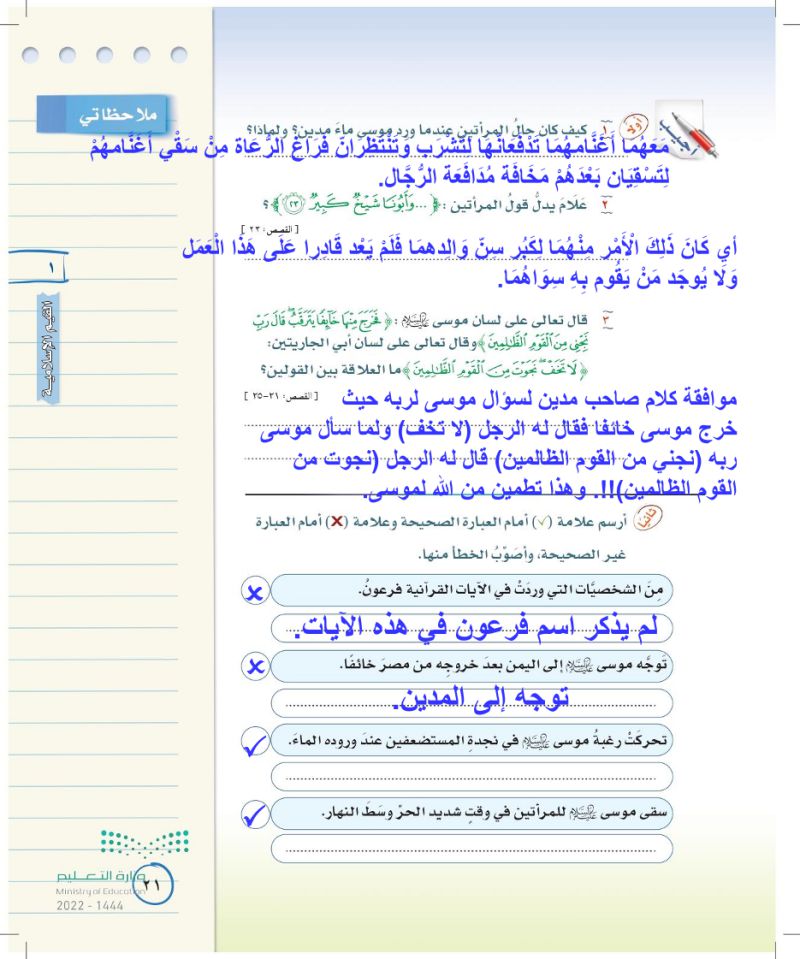 ملاحظاتي
أجيب
أولاً
١ كيف كان حالُ المرأتينِ عندما ورد موسى ماءَ مدين؟ ولماذا؟
مَعَهُمَا أَغْنَامهُمَا تَدْفَعَانِهَا لِتَشْرَب وَتَنْتَظِرَانِ فَرَاغ الرُّعَاة مِنْ سَقْي أَغْنَامهُمْ
لِتَسْقِيَان بَعْدَهُمْ مَخَافَة مُدَافَعَة الرِّجَال.
٢ عَلَامَ يدلُّ قولُ المرأتين: ﴿...وَأَبُونَا شَيْخٌ كَبِيرٌ ٢٣﴾؟
[القصص: ٢٣]
أي كَانَ ذَلِكَ الْأَمْر مِنْهُمَا لِكَبُر سِنّ وَالِدهِمَا فَلَمْ يَعْد قَادِرا عَلَى هَذَا الْعَمَل
وَلَا يُوجَد مَنْ يَقُوم بِهِ سِوَاهُمَا.
٣ قال تعالى على لسان موسى عليه السلام: ﴿فَخَرَجَ مِنْهَا خَائِفًا يَتَرَقَّبُ قَالَ رَبِّ
نَجِّنِي مِنَ الْقَوْمِ الظَّالِمِينَ﴾ وقال تعالى على لسان أبي الجاريتين:
﴿لَا تَخَفْ نَجَوْتَ مِنَ الْقَوْمِ الظَّالِمِينَ﴾ ما العلاقة بين القولين؟
[القصص: ٢١-٢٥]
موافقة كلام صاحب مدين لسؤال موسى لربه حيث
خرج موسى خائفا فقال له الرجل (لا تخف) ولما سأل موسى
ربه (نجني من القوم الظالمين) قال له الرجل (نجوت من
القوم الظالمين)!!. وهذا تطمين من الله لموسى.
ثانيًا
أرسم علامة (✓) أمام العبارة الصحيحة وعلامة (✗) أمام العبارة
غير الصحيحة، وأصوّبُ الخطأ منها.
مِنَ الشخصيَّات التي وردَتْ في الآيات القرآنية فرعونُ. ✗
لم يذكر اسم فرعون في هذه الآيات.
تَوجَّه موسى عليه السلام إلى اليمن بعدَ خروجِه من مصرَ خائفًا. ✗
توجه إلى المدين.
تحركَتْ رغبةُ موسى عليه السلام في نجدةِ المستضعفين عندَ وروده الماءَ. ✓
سقى موسى عليه السلام للمرأتين في وقتٍ شديد الحرّ وسَطَ النهار. ✓
١
القيم الإسلامية
وزارة التعليم
Ministry of Education
2022 - 1444
٢١